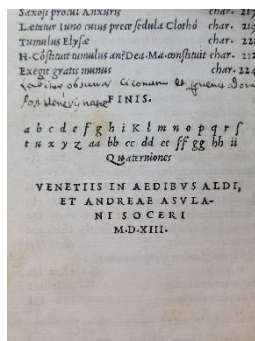 Saxosi procul Anxuris char. 217
Lætetur Iuno cuius prece sedula Clothó char.
Tumulus Elysæ char. 221
H. Cõstituit tumulus an? Dea. Ma. cõstituit char. 222
Exegit gratis munus char. 224
obscurus Ciconum et
FINIS.
a b c d e f g h i K l m n o p q r ſ
t u x y z aa bb cc dd ee ff gg hh ii
Quaterniones
VENETIIS IN AEDIBVS ALDI,
ET ANDREAE ASVLA-
NI SOCERI
M.D.XIII.